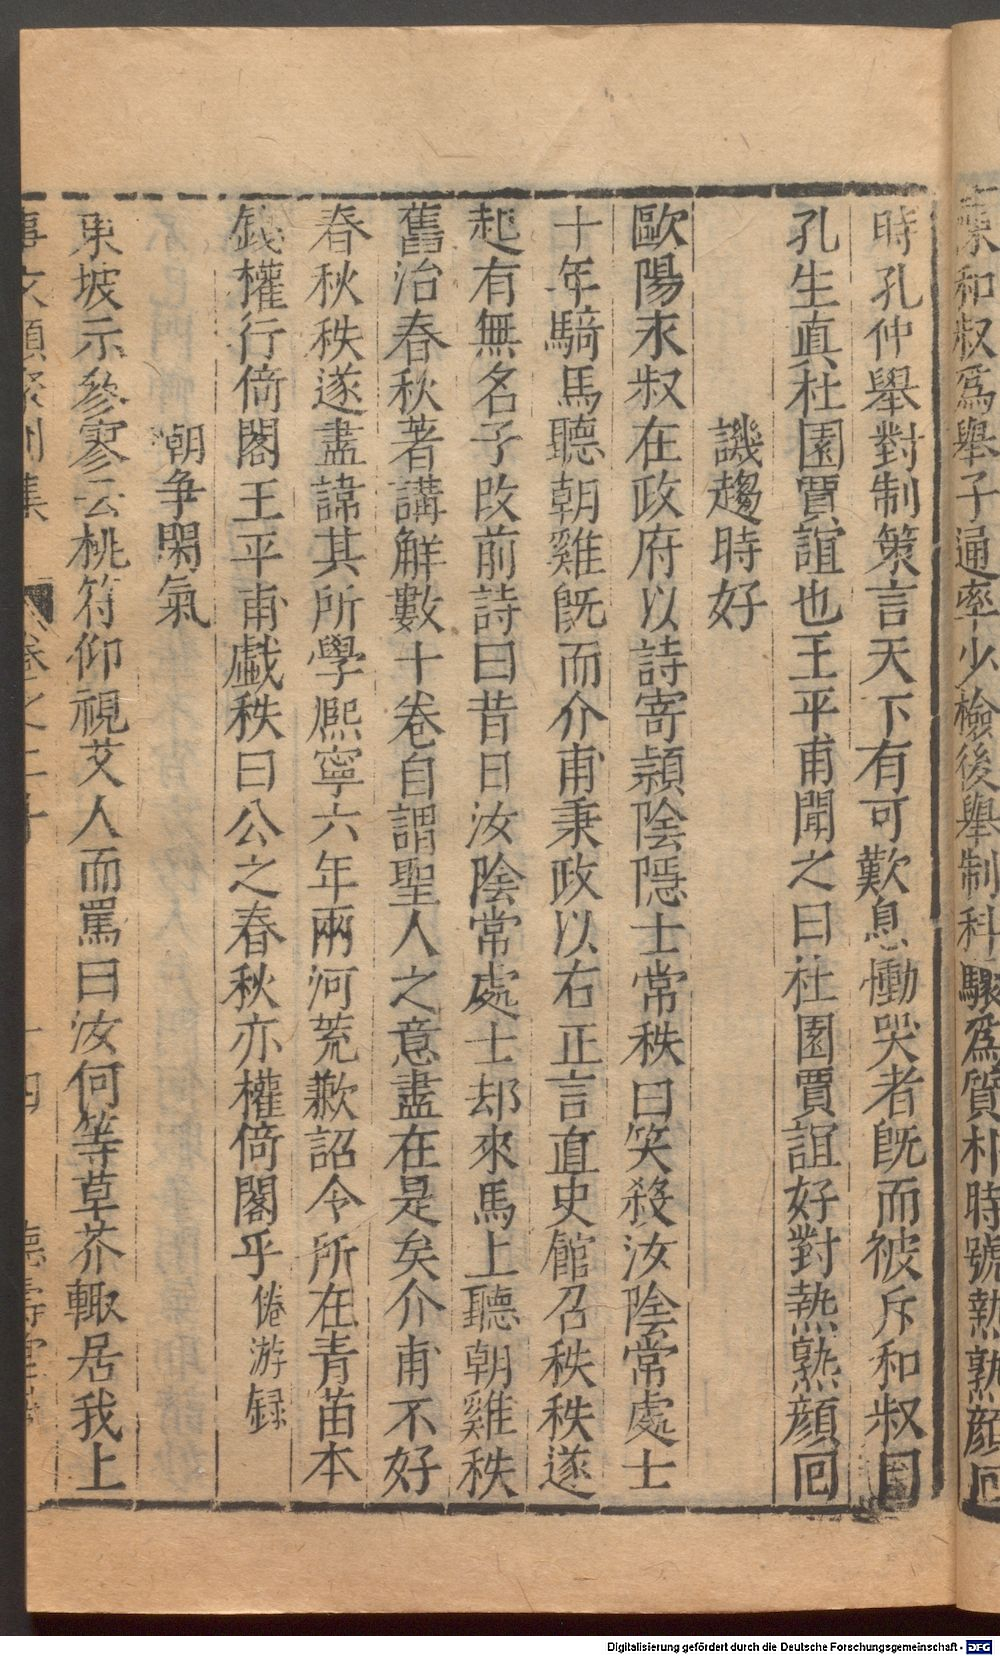 䇿和叔為舉子通率少檢後舉制科驟為質朴時號熱熟顏回
時孔仲舉對制策言天下有可歎息慟哭者旣而被斥和叔曰
孔生真杜園賈誼也王平甫聞之曰杜園賈誼好對熱熟顏回
譏趨時好
歐陽永叔在政府以詩寄潁陰隱士常秩曰笑殺汝陰常處士
十年騎馬聽朝雞旣而介甫秉政以右正言直史館召秩秩遂
起有無名子改前詩曰昔日汝陰常處士却來馬上聽朝雞秩
舊治春秋著講解數十卷自謂聖人之意盡在是矣介甫不好
春秋秩遂盡諱其所學熈寧六年兩河荒歉詔令所在青苗本
錢權行倚閣王平甫戲秩曰公之春秋亦權倚閣乎 倦游録
朝争閑氣
東坡示參寥云桃符仰視艾人而罵曰汝何等草芥輙居我上
事文類聚別集 卷之二十 十四 德壽堂
Digitalisierung gefördert durch die Deutsche Forschungsgemeinschaft - DFG